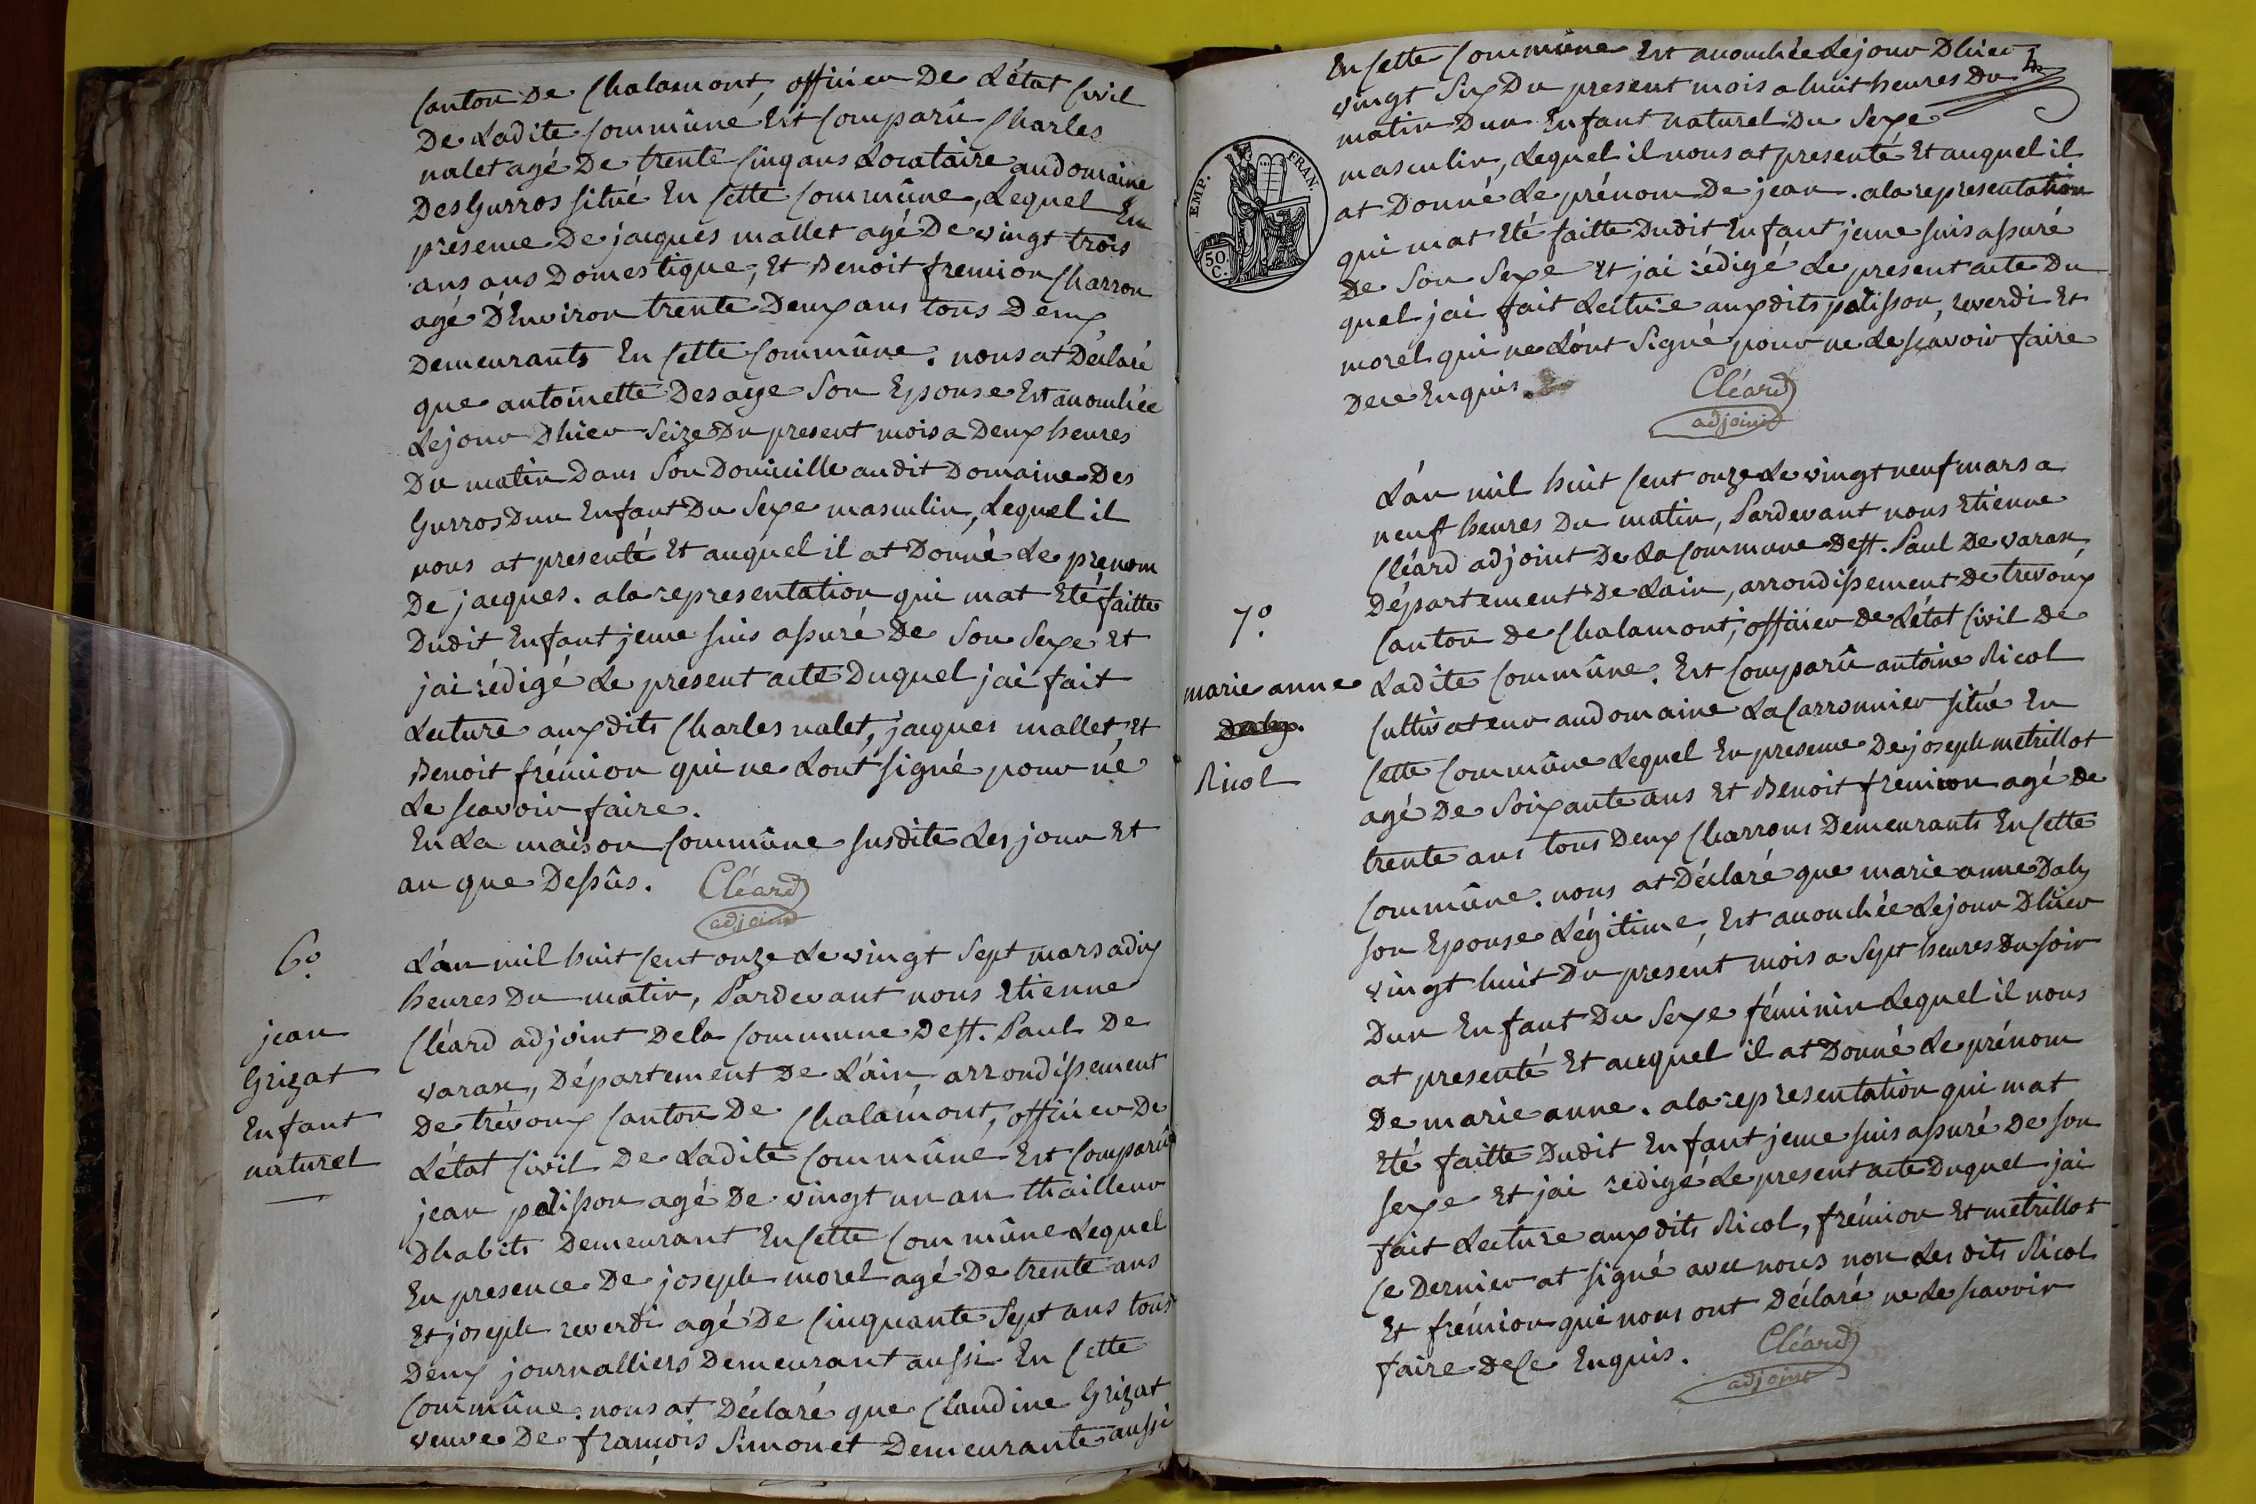 Canton De Chalamont, officier De L'état Civil
De Ladite Commûne Est Comparû Charles
nalet agé De trente Cinq ans Locataire au domaine
Des Gurros situé En Cette Commûne, Lequel En
presence De jacques mallet agé De vingt trois
ans ans Domestique, Et Benoit fremion Charron
agé D'Environ trente Deux ans tous Deux
Demeurants En Cette Commûne. nous at Déclaré
que antoinette Desaye Son Epouse Est accouchée
Lejour Dhier Seize Du present mois a Deux heures
Du matin Dans Son Domicille audit Domaine Des
Gurros Dun Enfant Du Sexe masculin, Lequel il
nous at presenté Et auquel il at Donné Le prenom
De jacques. ala representation qui mat Eté faitte
Dudit Enfant jeme suis assuré De Son Sexe Et
jai rédigé Le present acte Duquel jai fait
Lecture auxdits Charles nalet, jacques mallet, Et
Benoit frémion qui ne Lont signé pour né
Le scavoir faire.
En La maison Commûne susdite Les jour Et
an que Dessûs. Cléard
adjoint
6º
Lán mil huit Cent onze Le vingt Sept mars a dix
heures Du matin, Pardevant nous Etienne
Cléard adjoint Dela Commune De St. Paul De
varax, Département De L'ain, arrondissement
De trévoux Canton De Chalamont, officier De
L'état Civil De Ladite Commûne Est Comparû
jean palisson agé De vingt un an thailleur
Dhabits Demeurant En Cette Commûne Lequel
En presence De joseph morel agé De trente ans
Et joseph reverdi agé De Cinquante Sept ans tous
Deux journalliers Demeurant aussi En Cette
Commûne. nous at Déclaré que Claudine Grizat
veuve De françois Simonet Demeurante aussi
jean
Grizat
Enfant
naturel
4
En Cette Commûne Est accouchée Lejour Dhier
vingt Six Du present mois a huit heures Du
matin Dun Enfant naturel Du Sexe
masculin, Lequel il nous at presenté Et auquel il
at Donné Le prénom De jean. ala representation
qui mat Eté faitte Dudit Enfant jeme suis assuré
De Son Sexe Et jai rédigé Le present acte Du
quel jai fait Lecture auxdits palisson, reverdi Et
morel qui ne Lónt Signé pour ne Le sçavoir faire
De ce Enquis.
Cléard
adjoint
EMP. FRAN.
50
C.
Lán mil huit Cent onze Le vingt neuf mars a
neuf heures Du matin, Pardevant nous Etienne
Cléard adjoint De La Commune De St. Paul De varax,
Département De Lain, arrondissement De trevoux
Canton de Chalamont, officier de L'état Civil de
Ladite Commûne. Est Comparû antoine Ricol
Cultivateur audomaine La Carronnier situé En
Cette Commûne Lequel En presence De joseph metrillot
agé De Soixante ans Et Benoit fremion agé De
trente ans tous Deux Charrons Demeurants En Cette
Commûne. nous at Déclaré que marie anne Daly
son Epouse Légitime, Est accouchée Lejour Dhier
vingt huit Du present mois a Sept heures Du soir
Dun Enfant Du Sexe féminin Lequel il nous
at presenté Et auquel il at Donné Le prénom
De marie anne. ala representation qui mat
Eté faitte Dudit Enfant jeme suis assuré De son
sexe Et jai rédigé Le present acte Duquel jai
fait Lecture auxdits Ricol, frémion Et métrillot
Ce Dernier at signé avec nous non Les dits Ricol
Et frémion qui nous ont Déclaré ne Le scavoir
faire De Ce Enquis.
Cléard
adjoint
7º
marie anne
Ricol